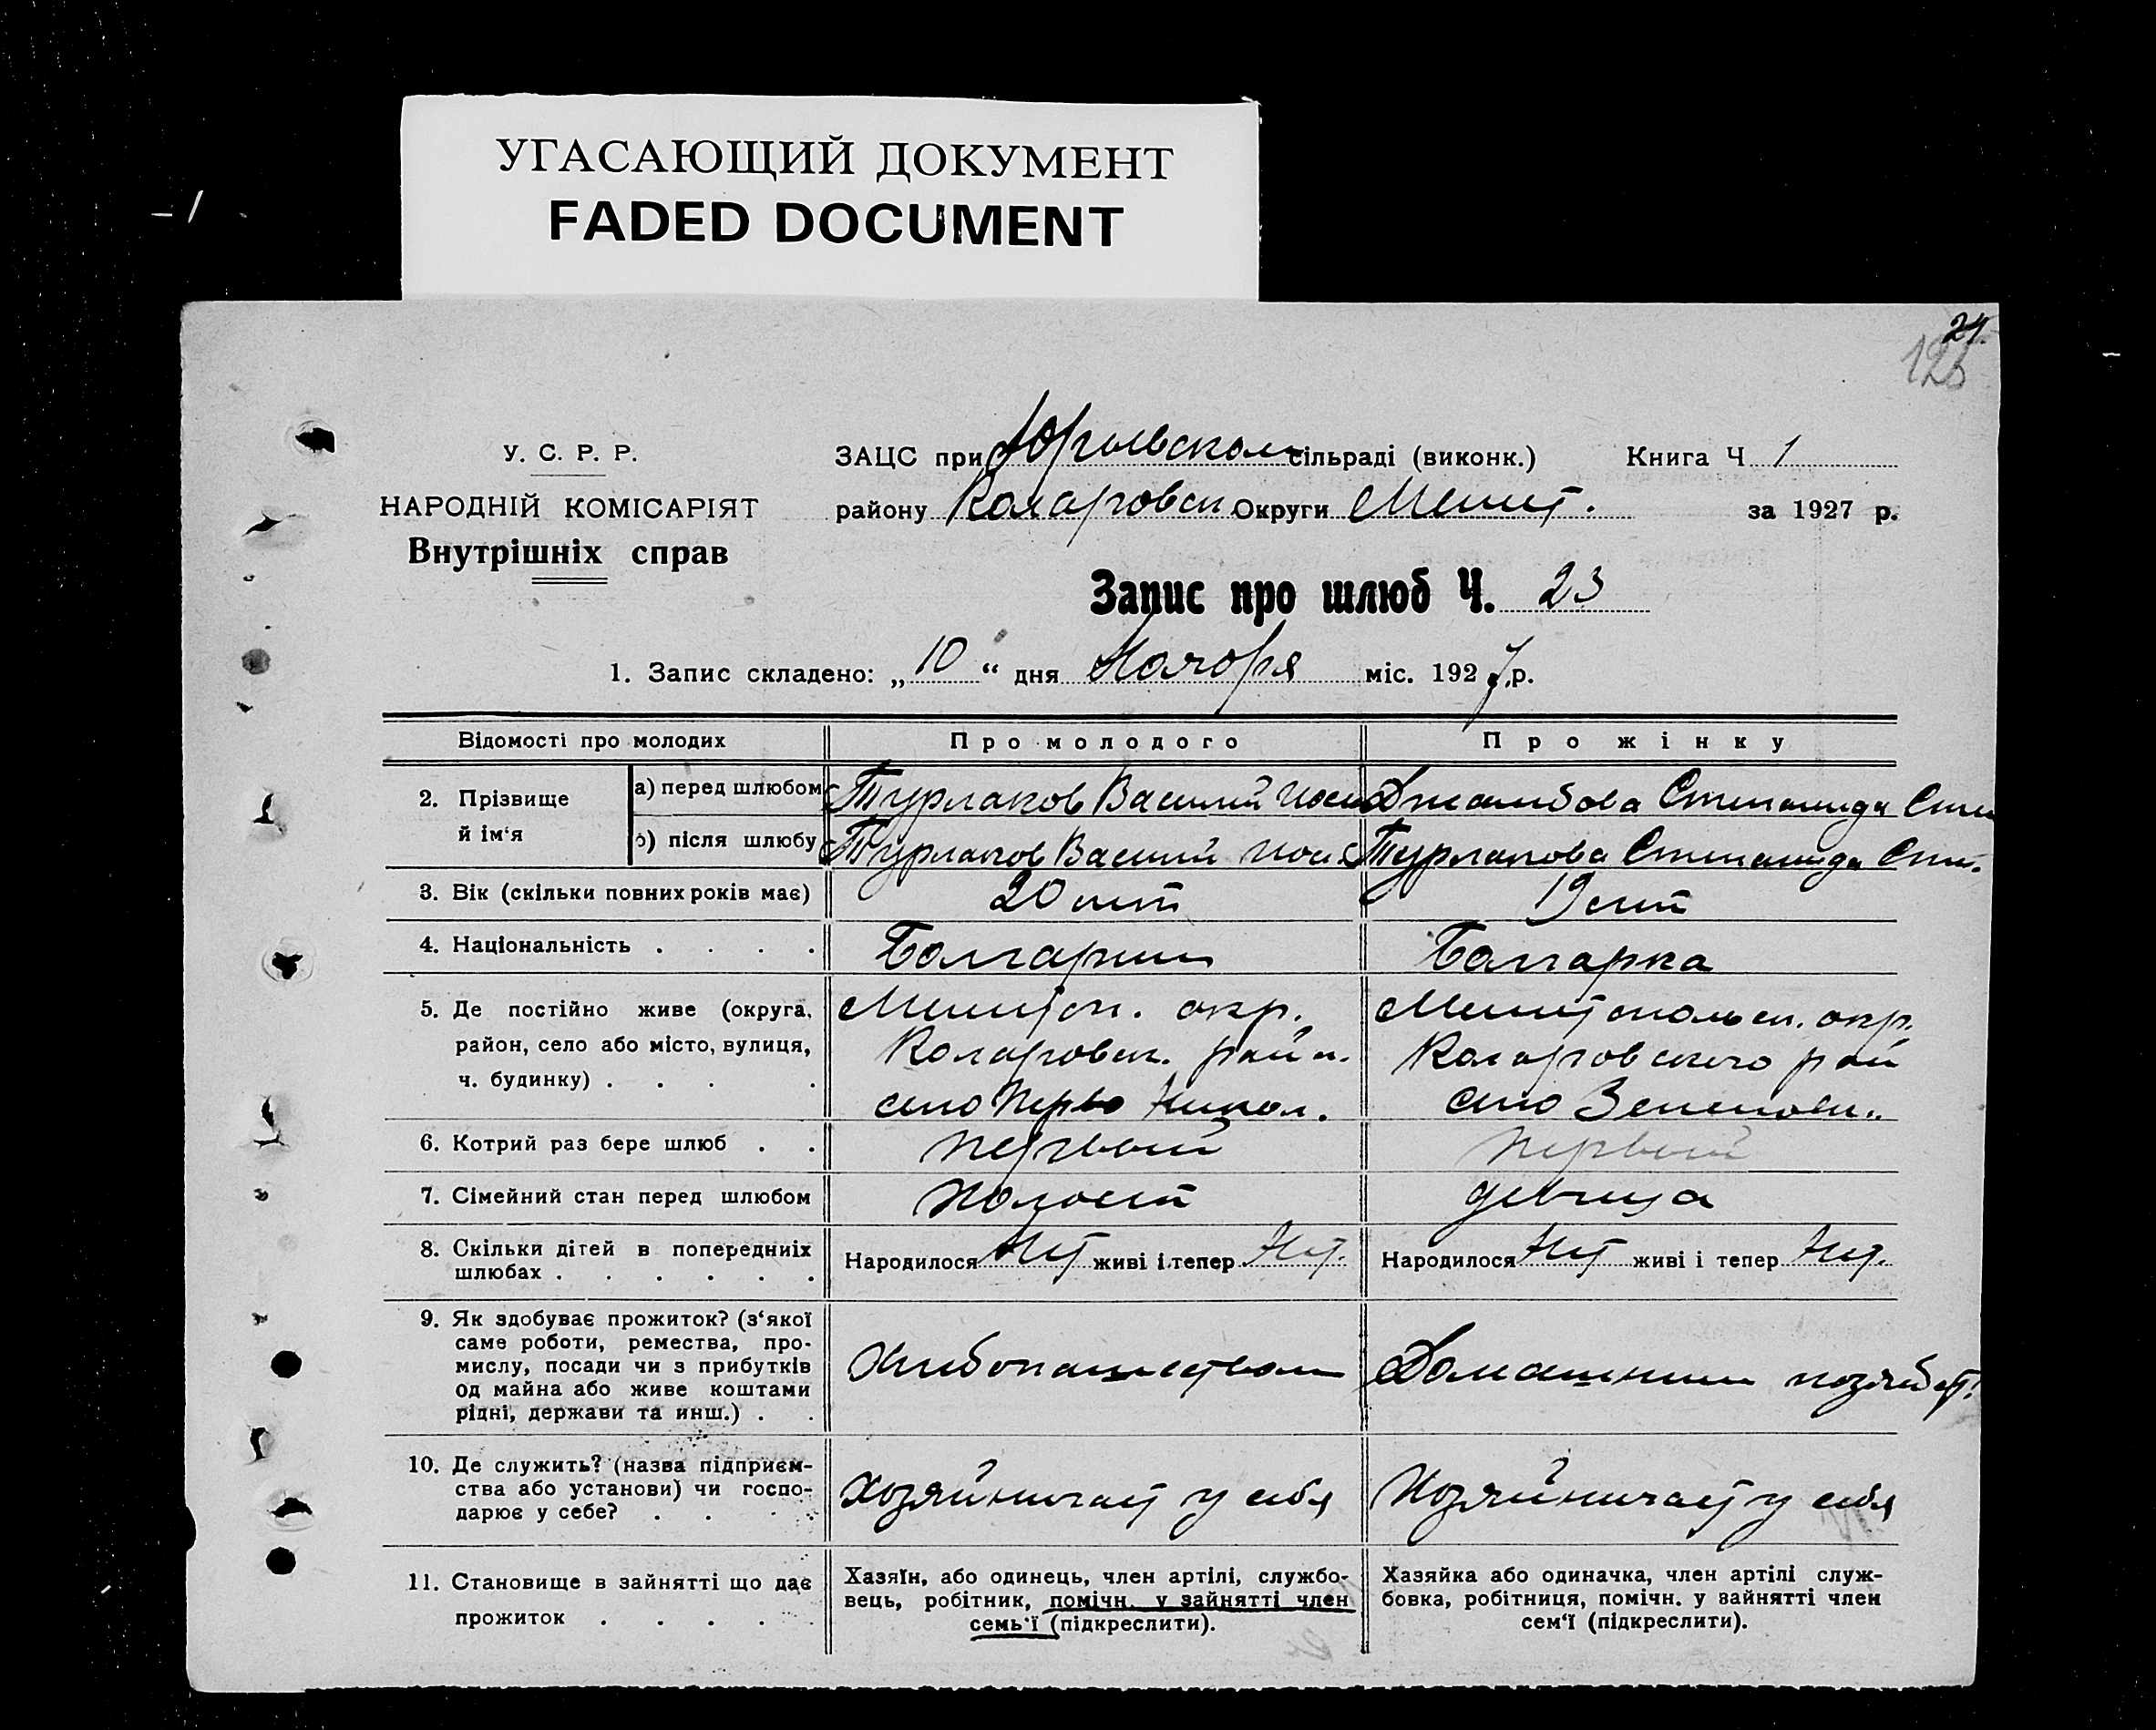 УГАСАЮЩИЙ ДОКУМЕНТ
FADED DOCUMENT
24.
125
У. С. Р. Р.
НАРОДНІЙ КОМІСАРІЯТ
Внутрішніх справ
ЗАЦС при Юрьевском сільраді (виконк.) Книга Ч 1
району Коларовск. Округи Мелит. за 1927 р.
Запис про шлюб Ч. 23
1. Запис складено: „ 10 “ дня Ноября міс. 1927 р.
Відомості про молодих
Про молодого
Про жінку
2. Прізвище й ім‘я
а) перед шлюбом
Турлаков Василий Иоси
Джамбова Степанида Сте
б) після шлюбу
Турлаков Василий Иоси
Турлакова Степанида Сте.
3. Вік (скільки повних років має)
20 лет
19 лет
4. Національність . . . .
Болгарин
Болгарка
5. Де постійно живе (округа,
район, село або місто, вулиця,
ч. будинку) . . . .
Мелитоп. окр.
Коларовск. район.
село Перво Никол.
Мелитопольск. окр.
Коларовского рай
село Зеленовк.
6. Котрий раз бере шлюб . .
первый
первый
7. Сімейний стан перед шлюбом
холост
девица
8. Скільки дітей в попередніх
шлюбах . . . . . .
Народилося Нет живі і тепер Нет.
Народилося Нет живі і тепер Нет.
9. Як здобуває прожиток? (з‘якої
саме роботи, ремества, про-
мислу, посади чи з прибутків
од майна або живе коштами
рідні, держави та инш.) . .
Хлебопашеством
Домашним хозяйст.
10. Де служить? (назва підприєм-
ства або установи) чи госпо-
дарює у себе? . . . .
Хозяйничает у себя
Хозяйничает у себя
11. Становище в зайнятті що дає
прожиток . . . . .
Хазяїн, або одинець, член артілі, службо-
вець, робітник, помічн. у зайнятті член
семь‘ї (підкреслити).
Хазяйка або одиначка, член артілі служ-
бовка, робітниця, помічн. у зайнятті член
сем‘ї (підкреслити).